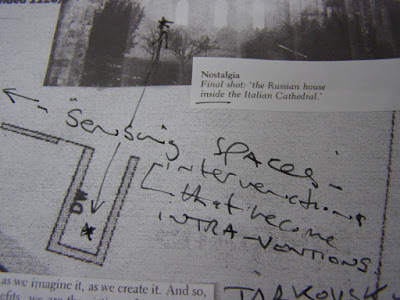 Nostalgia
Final shot: 'the Russian house
inside the Italian Cathedral.'
"Sensing SPACES –
interventions
that become
INTRA-VENTIONS.
as we imagine it, as we create it. And so,
we are the
TARKOVSK